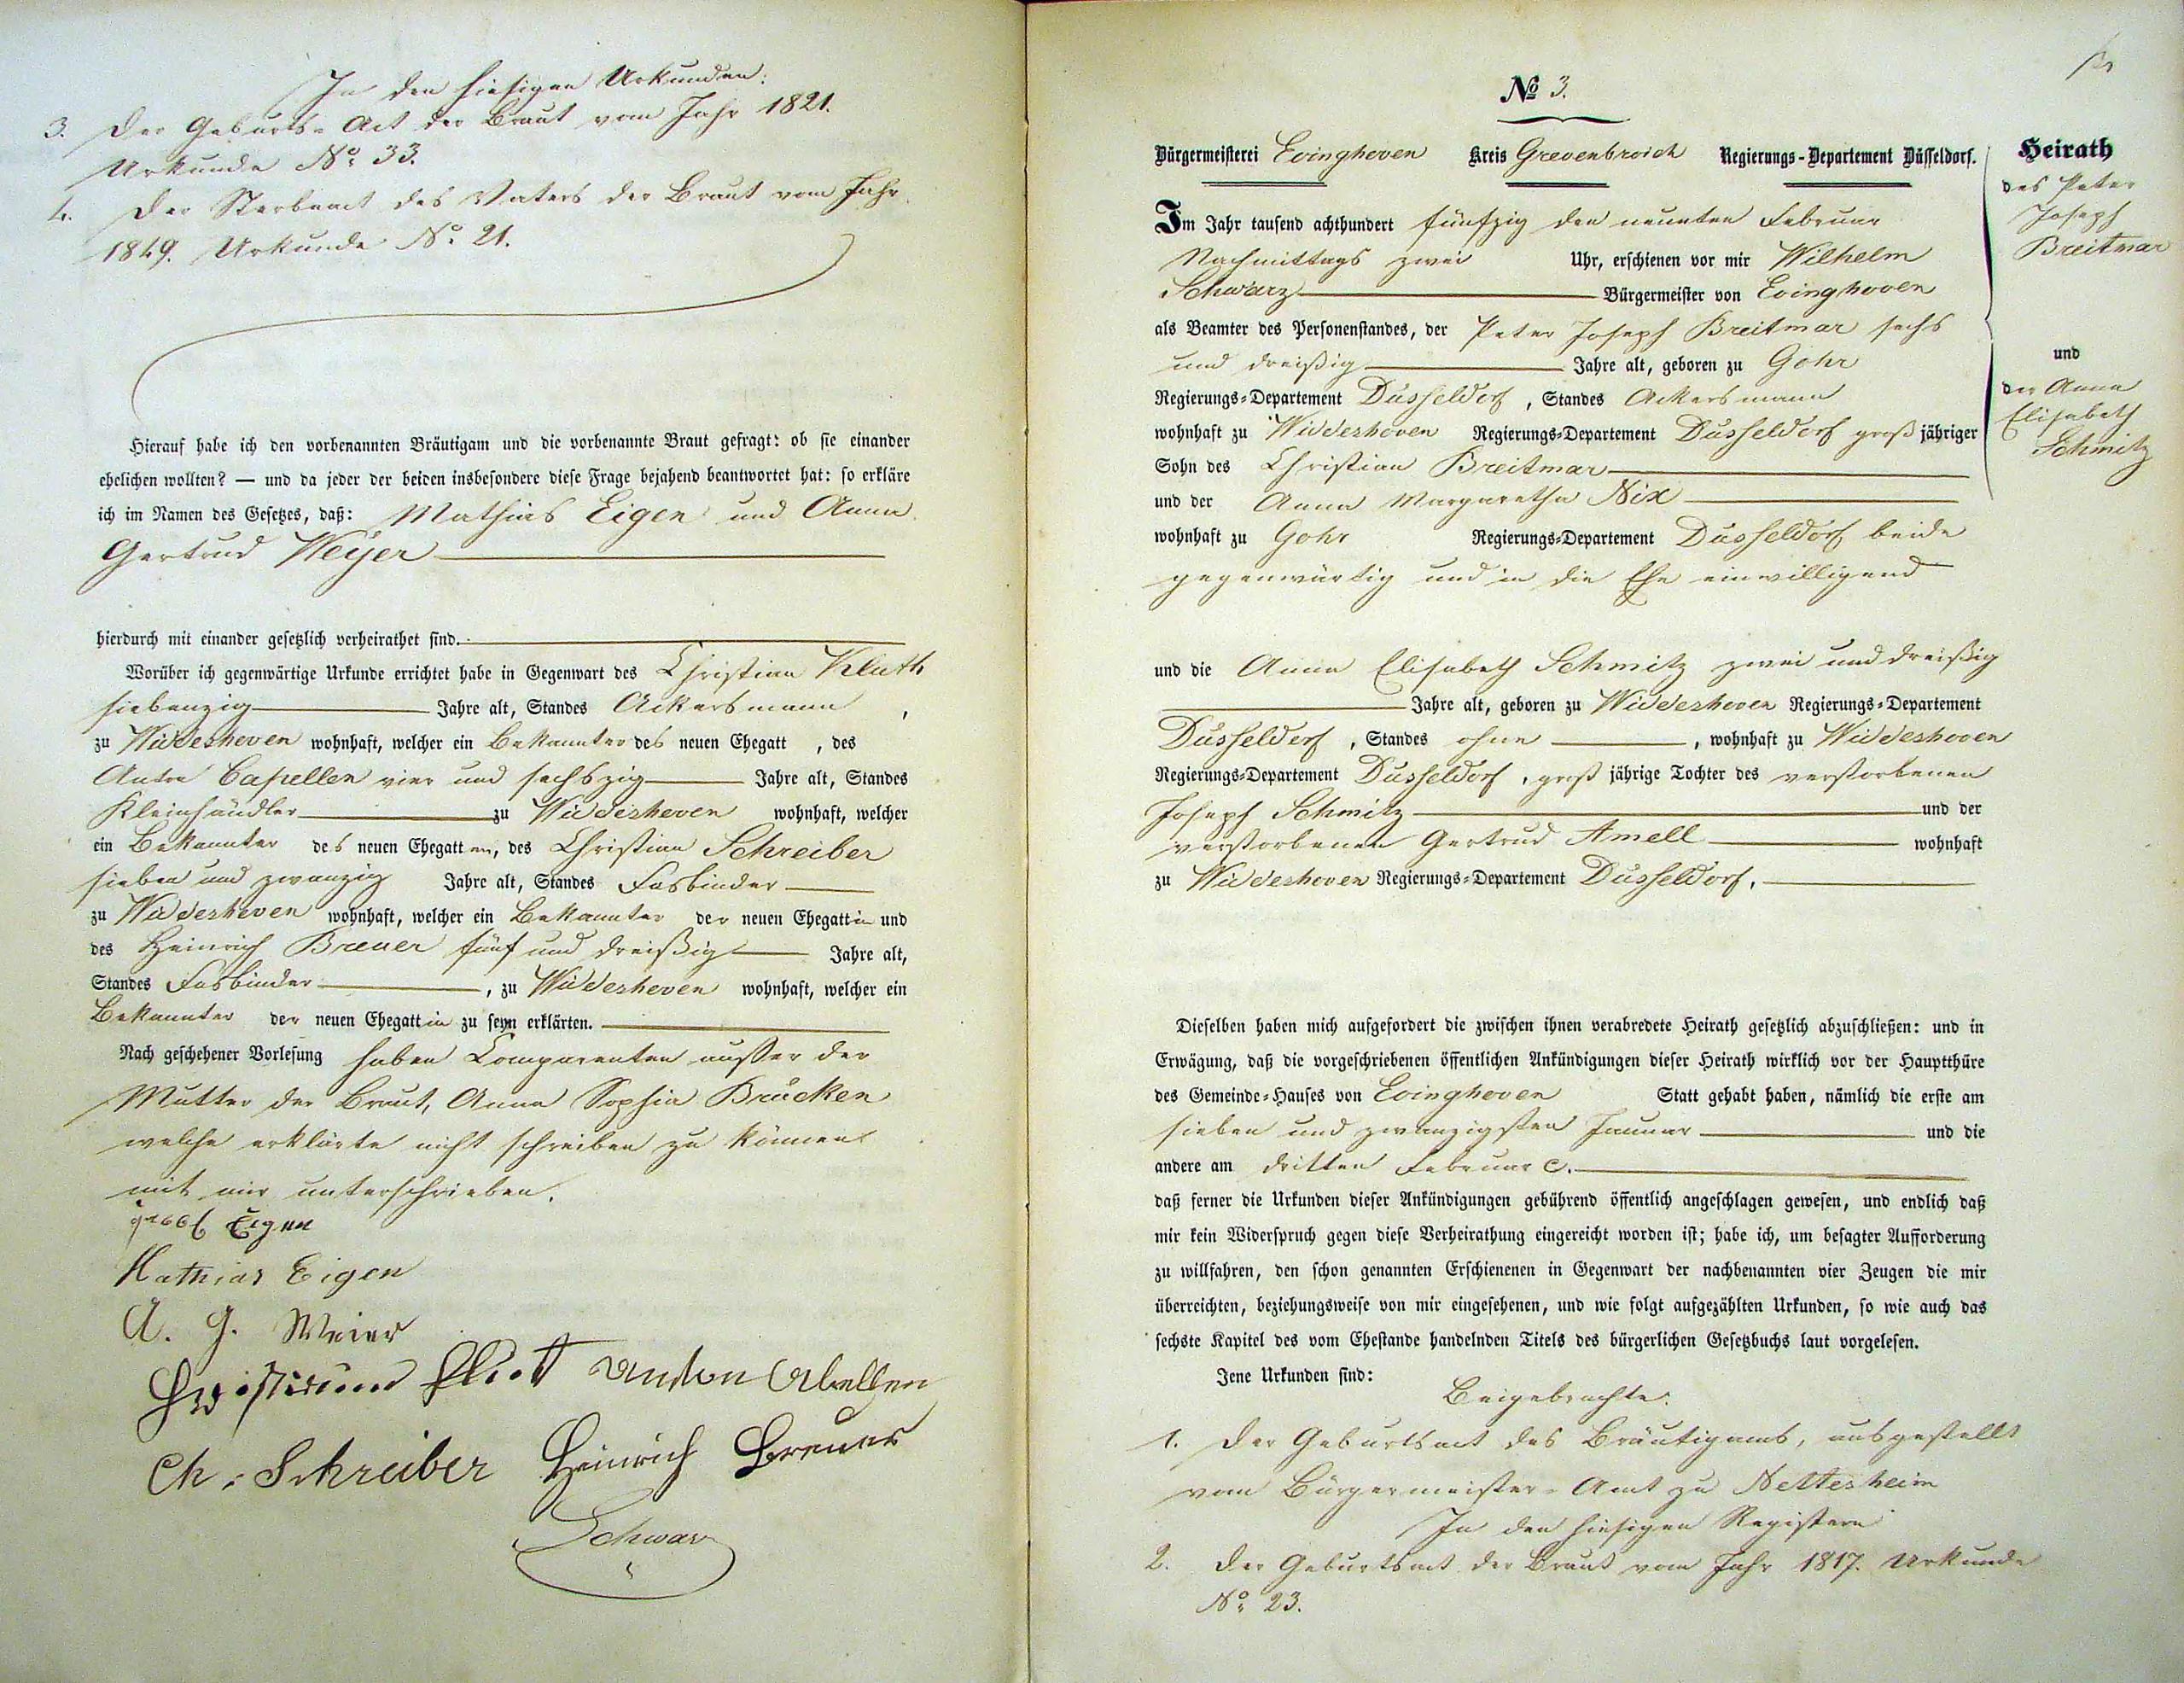 In den hiesigen Urkunden:
3. Der Geburts-Act der Braut vom Jahr 1821.
Urkunde No. 33.
4. Der Sterbeact des Vaters der Braut vom Jahr
1849. Urkunde No. 21.
Hierauf habe ich den vorbenannten Bräutigam und die vorbenannte Braut gefragt: ob sie einander
ehelichen wollten? — und da jeder der beiden insbesondere diese Frage bejahend beantwortet hat: so erkläre
ich im Namen des Gesetzes, daß: Mathias Eigen und Anna
Gertrud Weyer
hierdurch mit einander gesetzlich verheirathet sind.
Worüber ich gegenwärtige Urkunde errichtet habe in Gegenwart des Christian Kluth
siebenzig Jahre alt, Standes Ackersmann,
zu Widdeshoven wohnhaft, welcher ein Bekannter des neuen Ehegatt , des
Anton Capellen vier und sechszig Jahre alt, Standes
Kleinhändler zu Widdeshoven wohnhaft, welcher
ein Bekannter des neuen Ehegatten, des Christian Schreiber
sieben und zwanzig Jahre alt, Standes Fasbinder
zu Widdeshoven wohnhaft, welcher ein Bekannter der neuen Ehegattin und
des Heinrich Breuer fünf und dreißig Jahre alt,
Standes Fasbinder, zu Widdeshoven wohnhaft, welcher ein
Bekannter der neuen Ehegattin zu seyn erklärten.
Nach geschehener Vorlesung haben Comparenten ausser der
Mutter der Braut, Anna Sophia Brücken
welche erklärte nicht schreiben zu können
mit mir unterschrieben.
Eigen
Mathias Eigen
A. G. Weier
Christian Klut Anton Cabellen
Ch. Schreiber Heinrich Breuer
Schwarz
No 3.
Bürgermeisterei Evinghoven Kreis Grevenbroich Regierungs-Departement Düsseldorf.
Im Jahr tausend achthundert fünfzig den neunten Februar
Nachmittags zwei Uhr, erschienen vor mir Wilhelm
Schwarz Bürgermeister von Evinghoven
als Beamter des Personenstandes, der Peter Joseph Breitmar sechs
und dreißig Jahre alt, geboren zu Gohr
Regierungs-Departement Düsseldorf, Standes Ackersmann
wohnhaft zu Widdeshoven Regierungs-Departement Düsseldorf großjähriger
Sohn des Christian Breitmar
und der Anna Margaretha Nix
wohnhaft zu Gohr Regierungs-Departement Düsseldorf beide
gegenwärtig und in die Ehe einwilligend
und die Anna Elisabeth Schmitz zwei und dreißig
Jahre alt, geboren zu Widdeshoven Regierungs-Departement
Düsseldorf, Standes ohne, wohnhaft zu Widdeshoven
Regierungs-Departement Düsseldorf, großjährige Tochter des verstorbenen
Joseph Schmitz und der
verstorbenen Gertrud Amell wohnhaft
zu Widdeshoven Regierungs-Departement Düsseldorf.
Dieselben haben mich aufgefordert die zwischen ihnen verabredete Heirath gesetzlich abzuschließen: und in
Erwägung, daß die vorgeschriebenen öffentlichen Ankündigungen dieser Heirath wirklich vor der Hauptthüre
des Gemeinde-Hauses von Evinghoven Statt gehabt haben, nämlich die erste am
sieben und zwanzigsten Januar und die
andere am dritten Februar c.
daß ferner die Urkunden dieser Ankündigungen gebührend öffentlich angeschlagen gewesen, und endlich daß
mir kein Widerspruch gegen diese Verheirathung eingereicht worden ist; habe ich, um besagter Aufforderung
zu willfahren, den schon genannten Erschienenen in Gegenwart der nachbenannten vier Zeugen die mir
überreichten, beziehungsweise von mir eingesehenen, und wie folgt aufgezählten Urkunden, so wie auch das
sechste Kapitel des vom Ehestande handelnden Titels des bürgerlichen Gesetzbuchs laut vorgelesen.
Jene Urkunden sind:
Beigebrachte:
1. Der Geburtsact des Bräutigams, ausgestellt
vom Bürgermeister-Amt zu Nettesheim
In den hiesigen Registern
2. Der Geburtsact der Braut vom Jahr 1817. Urkunde
No. 23.
Heirath
des Peter
Joseph
Breitmar
und
der Anna
Elisabeth
Schmitz